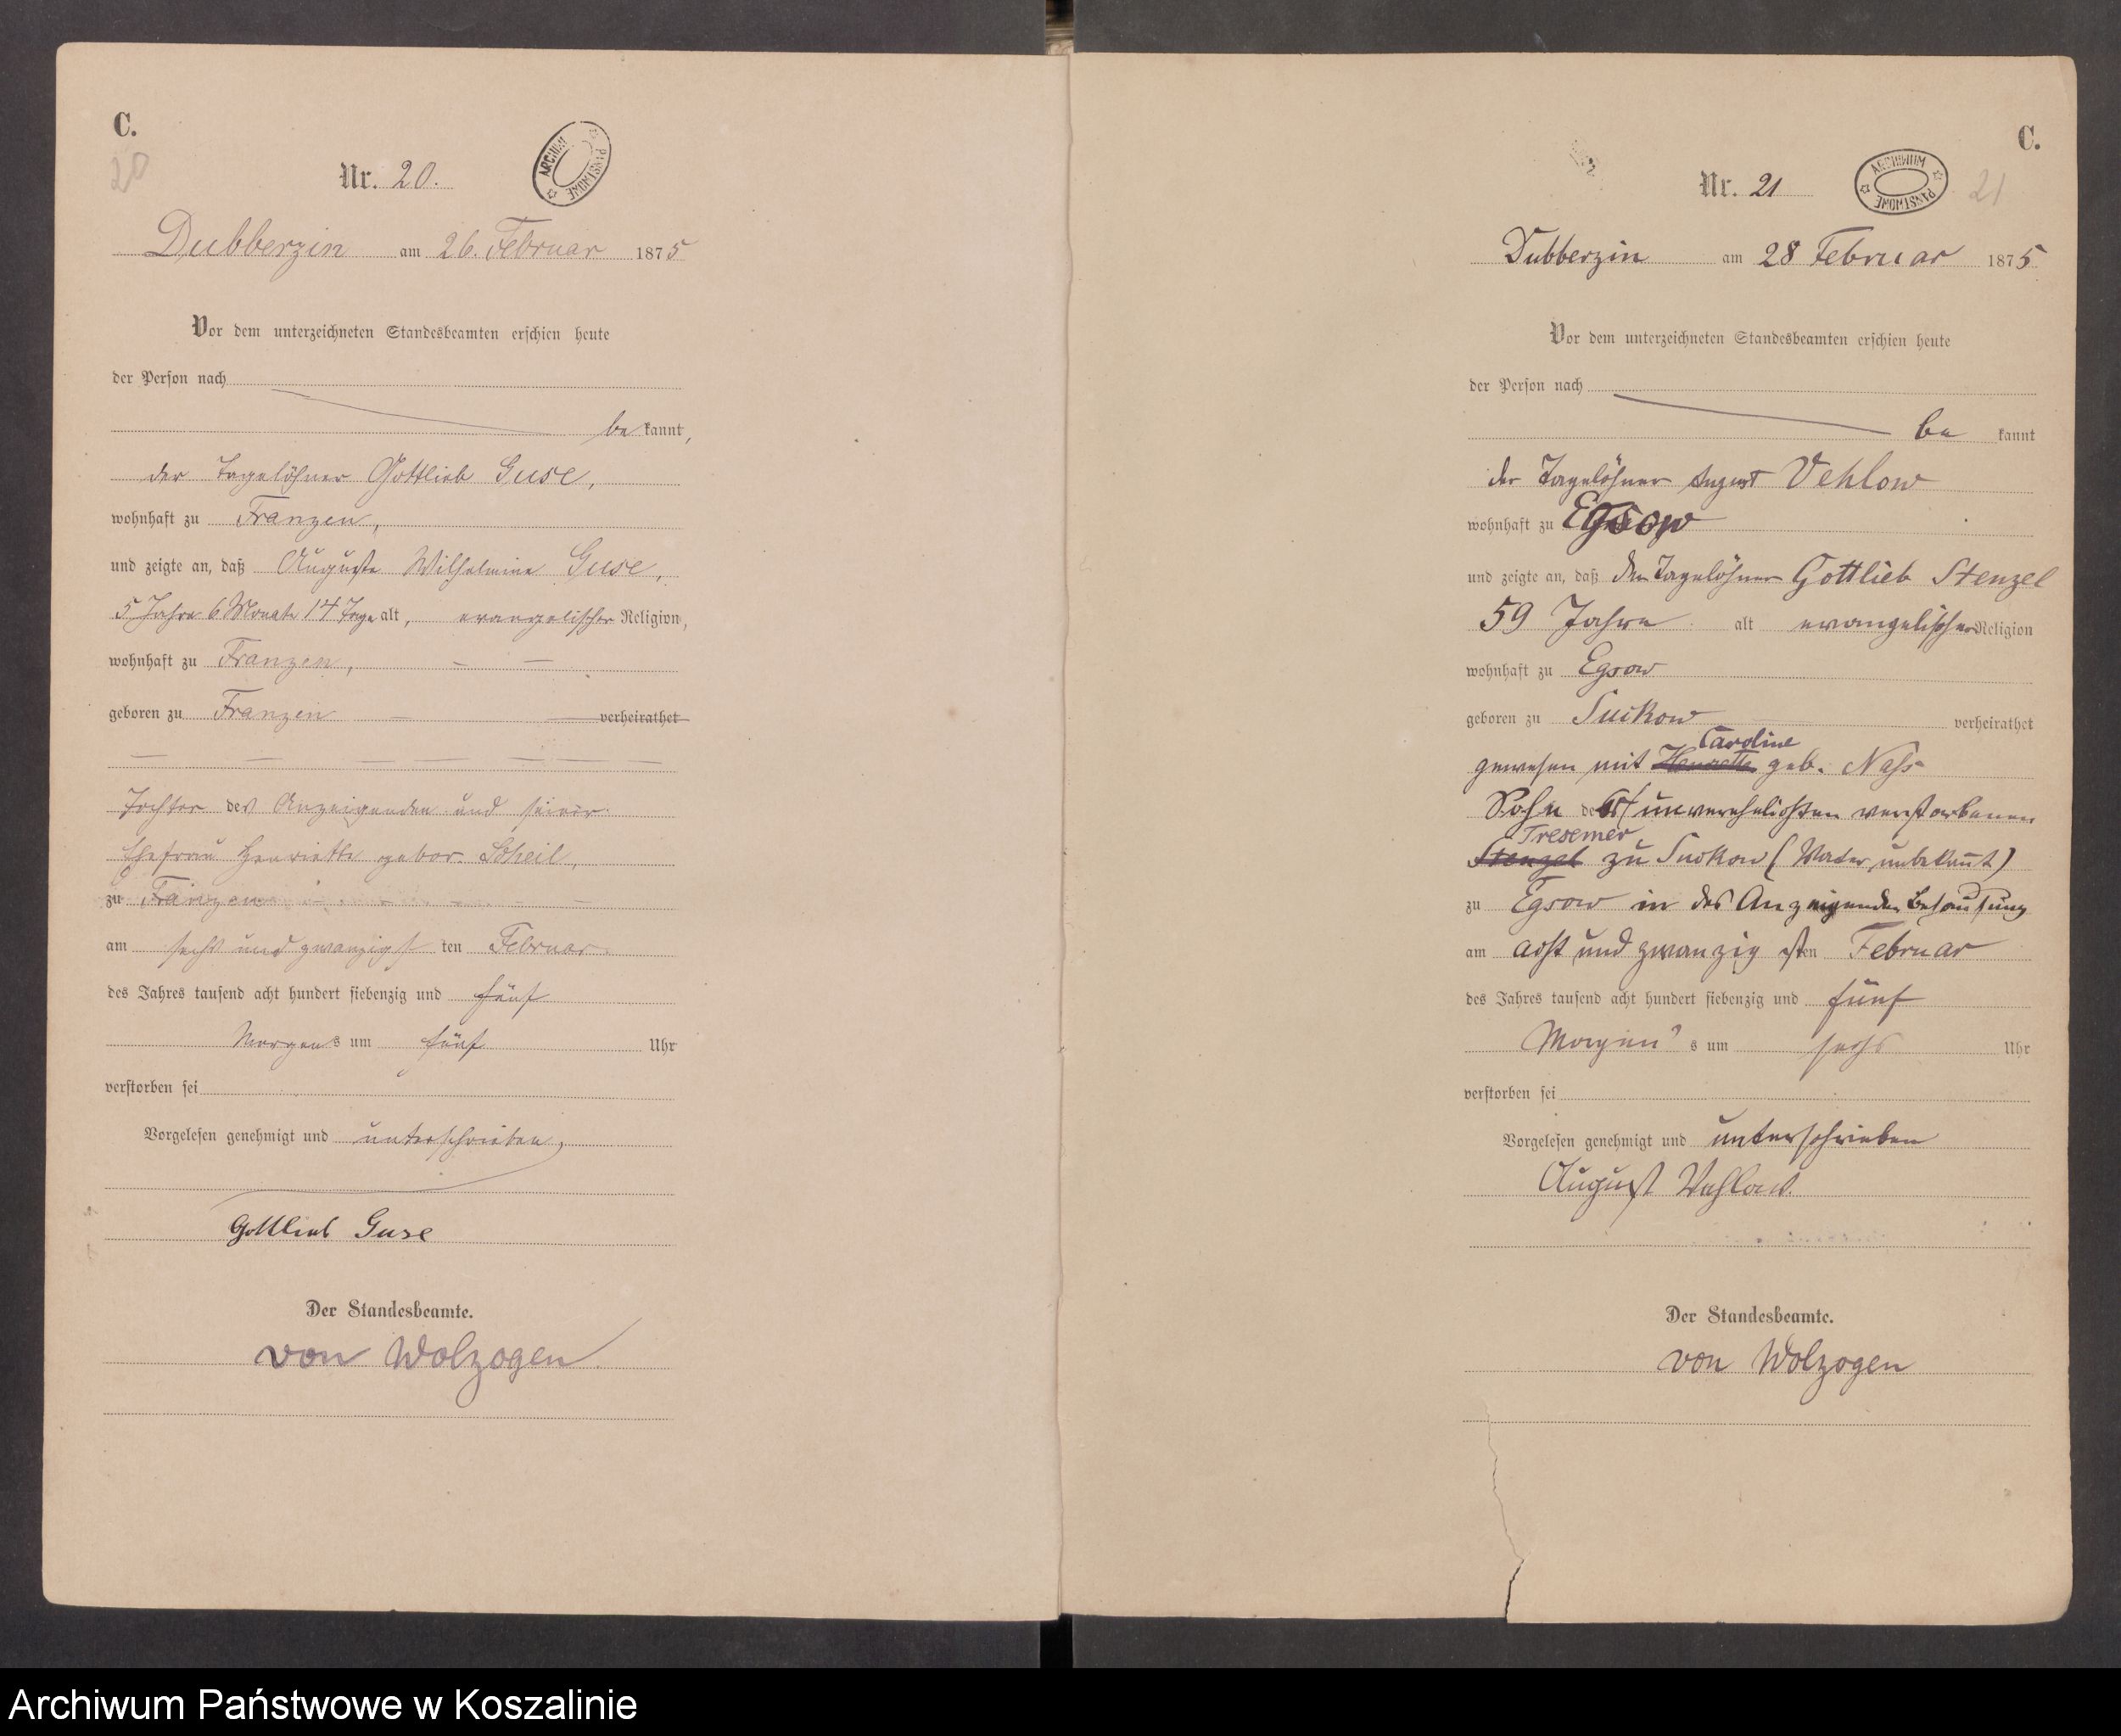 C.
20
Nr. 20.
ARCHIWUM PAŃSTWOWE
Dubberzin am 26. Februar 1875
Vor dem unterzeichneten Standesbeamten erschien heute
der Person nach
be kannt,
der Tagelöhner Gottlieb Guse,
wohnhaft zu Franzen,
und zeigte an, daß Auguste Wilhelmine Guse,
5 Jahre 6 Monate 14 Tage alt, evangelischer Religion,
wohnhaft zu Franzen,
geboren zu Franzen verheirathet
Tochter des Anzeigenden und seiner
Ehefrau Henriette gebor. Scheil,
zu Franzen
am sechs und zwanzigst ten Februar
des Jahres tausend acht hundert siebenzig und fünf
Morgens um fünf Uhr
verstorben sei
Vorgelesen genehmigt und unterschrieben,
Gottlieb Guse
Der Standesbeamte.
von Wolzogen.
C.
Nr. 21
ARCHIWUM PAŃSTWOWE
21
Dubberzin am 28 Februar 1875
Vor dem unterzeichneten Standesbeamten erschien heute
der Person nach
be kannt
der Tagelöhner August Vehlow
wohnhaft zu Egsow
und zeigte an, daß der Tagelöhner Gottlieb Stenzel
59 Jahre alt evangelischer Religion
wohnhaft zu Egsow
geboren zu Suckow verheirathet
Caroline
gewesen mit Henriette geb. Nass
Sohn der unverehelichten verstorbenen
Tresemer
Stenzel zu Suckow (Vater unbekannt)
zu Egsow in des Anzeigenden Behausung
am acht und zwanzig sten Februar
des Jahres tausend acht hundert siebenzig und fünf
Morgens um sechs Uhr
verstorben sei
Vorgelesen genehmigt und unterschrieben
August Vehlow.
Der Standesbeamte.
von Wolzogen
Archiwum Państwowe w Koszalinie